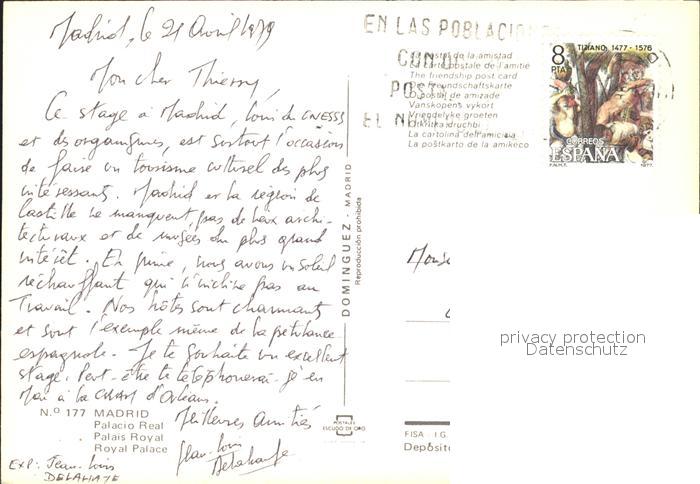 Madrid, le 21 Avril 1979
Mon cher Thierry,
Ce stage à Madrid, loin du CNESSS
et des organigrammes, est surtout l'occasion
de faire un tourisme culturel des plus
intéressants. Madrid et la région de
Castille ne manquent pas de lieux archi-
tecturaux et de musées du plus grand
intérêt. En prime, nous avons un soleil
réchauffant qui n'incline pas au
Travail. Nos hôtes sont charmants
et sont l'exemple même de la pétulance
espagnole. Je te souhaite un excellent
stage. Peut-être te téléphonerai-je en
Mai à la d'Orléans.
Meilleures amitiés
Jean-Louis
Delahaye
EXP: Jean-Louis
DELAHAYE
N.o 177 MADRID
Palacio Real
Palais Royal
Royal Palace
DOMINGUEZ - MADRID
Reproducción prohibida
POSTALES
ESCUDO DE ORO
EN LAS POBLACION
CON
POST
EL N
La postal de la amistad
La carte postale de l'amitié
The friendship post card
Die Freundschaftskarte
O postal de amizade
Vanskopens vykort
Vriendelyke groeten
Otkritka druchbi
La cartolina dell'amicizia
La poŝtkarto de la amikeco
8
PTA
TIZIANO 1477-1576
CORREOS
ESPAÑA
F.N.M.T. 1977
Monsi
privacy protection
Datenschutz
FISA - I.G.
Depósito